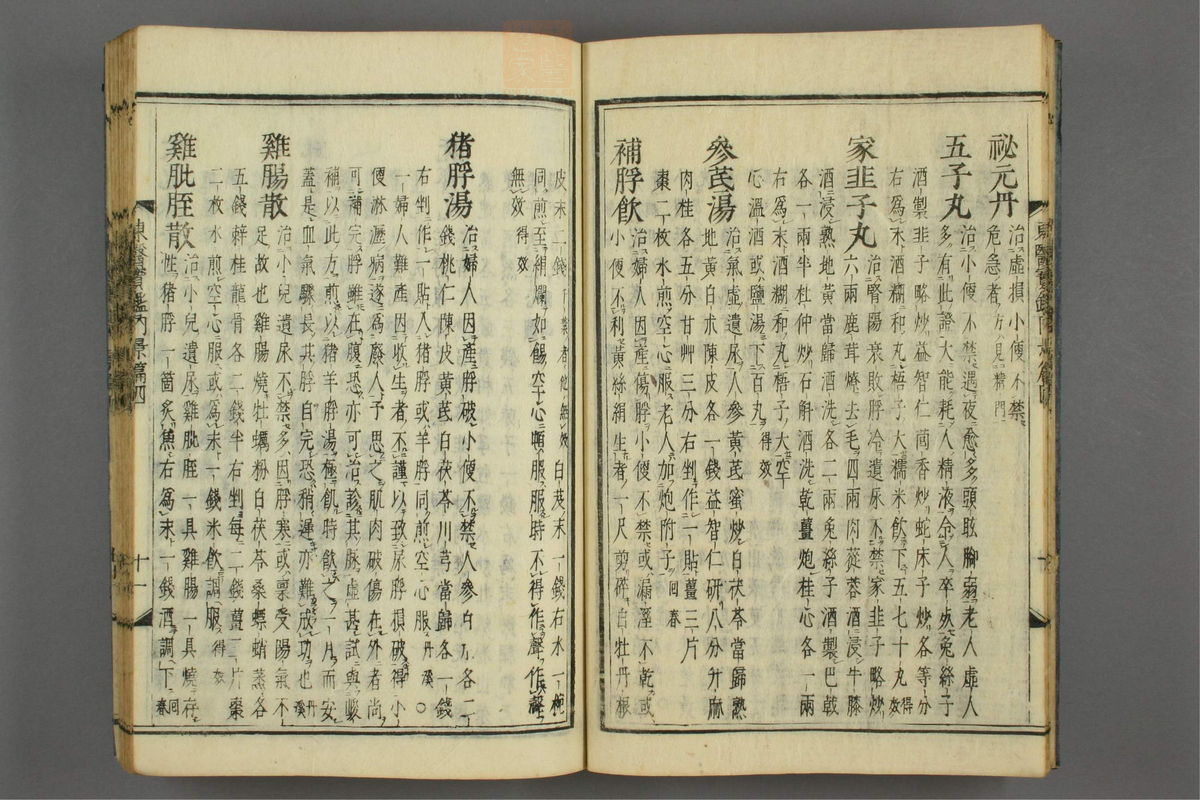 祕元丹治虛損小便不禁
危急者方見精門
五子丸治小便不禁遇夜愈多頭眩脚弱老人虛人
多有此證大能耗人精液令人卒死兔絲子
酒製韭子略炒益智仁茴香炒蛇床子炒各等分
右爲末酒糊和丸梧子大糯米飮下五七十丸得效
家韭子丸治腎陽衰敗脬冷遺尿不禁家韭子略炒
六兩鹿茸燎去毛四兩肉蓯蓉酒浸牛膝
酒浸熟地黃當歸酒洗各二兩兔絲子酒製巴戟
各一兩半杜仲炒石斛酒洗乾薑炮桂心各一兩
右爲末酒糊和丸梧子大空
心溫酒或鹽湯下百丸得效
參芪湯治氣虛遺尿人參黃芪蜜炒白茯苓當歸熟
地黃白朮陳皮各一錢益智仁研八分升麻
肉桂各五分甘艸三分右剉作一貼薑三片
棗二枚水煎空心服老人加炮附子回春
補脬飮治婦人因產傷脬小便不禁或漏溼不乾或
小便不利黃絲絹生者一尺剪碎白牡丹根
皮末二錢
白芨末一錢右水一椀
同煎至絹爛如餳空心頓服服時不得作聲作聲
無效得效
猪脬湯治婦人因產脬破小便不禁人參白朮各二
錢桃仁陳皮黃芪白茯苓川芎當歸各一錢
右剉作一貼入猪脬或羊脬同煎空心服丹溪〇
一婦人難產因收生者不謹以致尿脬損破得小
便淋瀝病遂爲廢人予思之肌肉破傷在外者尚
可補完脬雖在腹恐亦可治診其脉虛甚試與峻
補以此方煎以猪羊脬湯極飢時飮之一月而安
蓋是血氣驟長其脬自完恐稍遲亦難成功也丹溪
雞腸散治小兒遺尿不禁多因脬寒或稟受陽氣不
足故也雞腸燒牡蠣粉白茯苓桑螵蛸蒸各
五錢辣桂龍骨各二錢半右剉每二錢薑二片棗
二枚水煎空心服或爲末一錢米飮調服得效
雞肶胵散治小兒遺尿雞肶胵一具雞腸一具燒存
性猪脬一箇炙焦右爲末一錢酒調下回春
東醫寶鑑內景篇四
十一